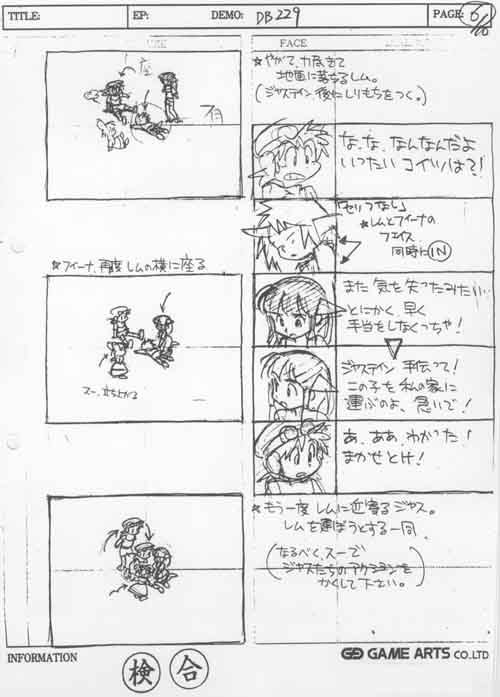 TITLE: EP: DEMO: DB229 PAGE: 6/10
FACE
★やがて、力尽きて
地面に落ちるレム。
(ジャスティン、後にしりもちをつく。)
座
な、な、なんなんだよ
いったい コイツは?!
「セリフなし」
★レムとフィーナの
フェイス
同時にIN
★フィーナ、再度 レムの横に座る
スー、立ち上がる
また 気を失ったみたい…
とにかく、早く
手当をしなくっちゃ!
ジャスティン 手伝って!
この子を 私の家に
運ぶのよ、急いで!
あ、ああ、わかった!
まかせとけ!
★もう一度 レムに近寄るジャス。
レムを運ぼうとする一同
(なるべく、スーで
ジャスたちのアクションを
かくして下さい。)
INFORMATION
検 合
GAME ARTS CO.,LTD